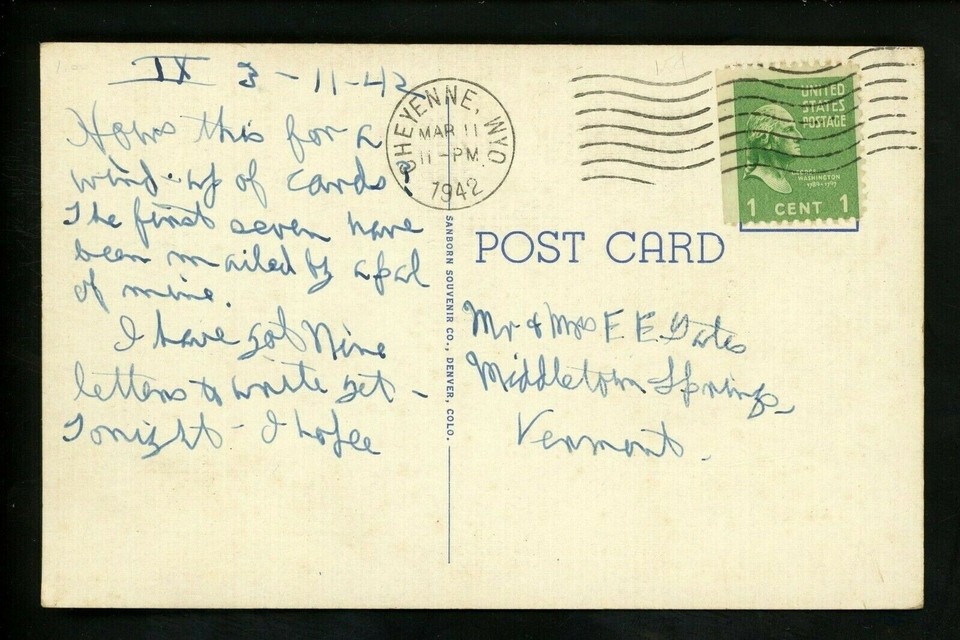 IX 3-11-42
Hows this for a
wind-up of cards?
The first seven have
been mailed by a pal
of mine.
I have got Nine
letters to write yet -
Tonight - I hope
CHEYENNE, WYO.
MAR 11
11-PM
1942
UNITED
STATES
POSTAGE
GEORGE
WASHINGTON
1789-1797
1 CENT 1
POST CARD
SANBORN SOUVENIR CO., DENVER, COLO.
Mr & Mrs E E Yates
Middletown Springs
Vermont.